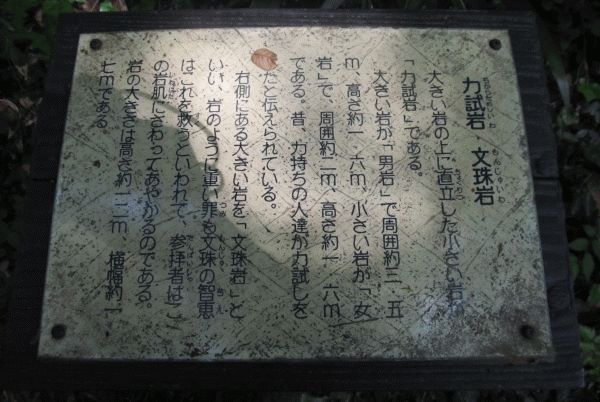 力試岩 文珠岩
ちからだめしいわ もんじゅいわ
大きい岩の上に直立した小さい岩が
「力試岩」である。
大きい岩が「男岩」で周囲約三、五
m、高さ約一、六m、小さい岩が「女
岩」で、周囲約二m、高さ約一、六m
である。昔、力持ちの人達が力試しを
たと伝えられている。
右側にある大きい岩を「文珠岩」と
いい、岩のように重い罪も文珠の智恵
はこれを救うといわれて、参拝者はこ
の岩肌にさわってあやかるのである。
岩の大きさは高さ約一二m、横幅約一
七mである。